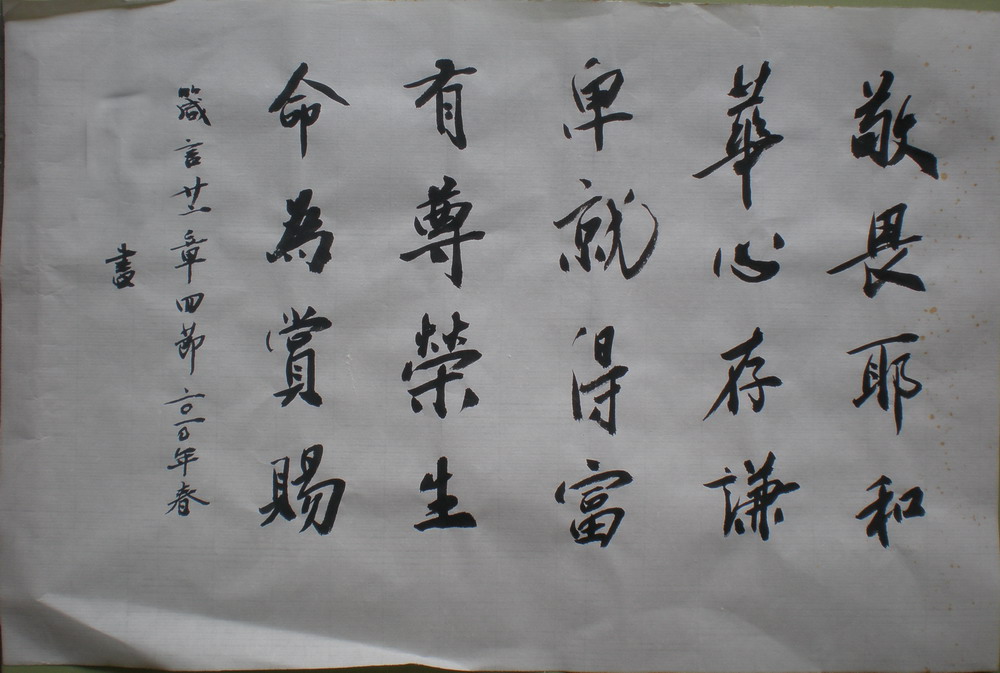 敬畏耶和
華心存謙
卑就得富
有尊榮生
命為賞賜
箴言廿二章四節二〇一〇年春
書